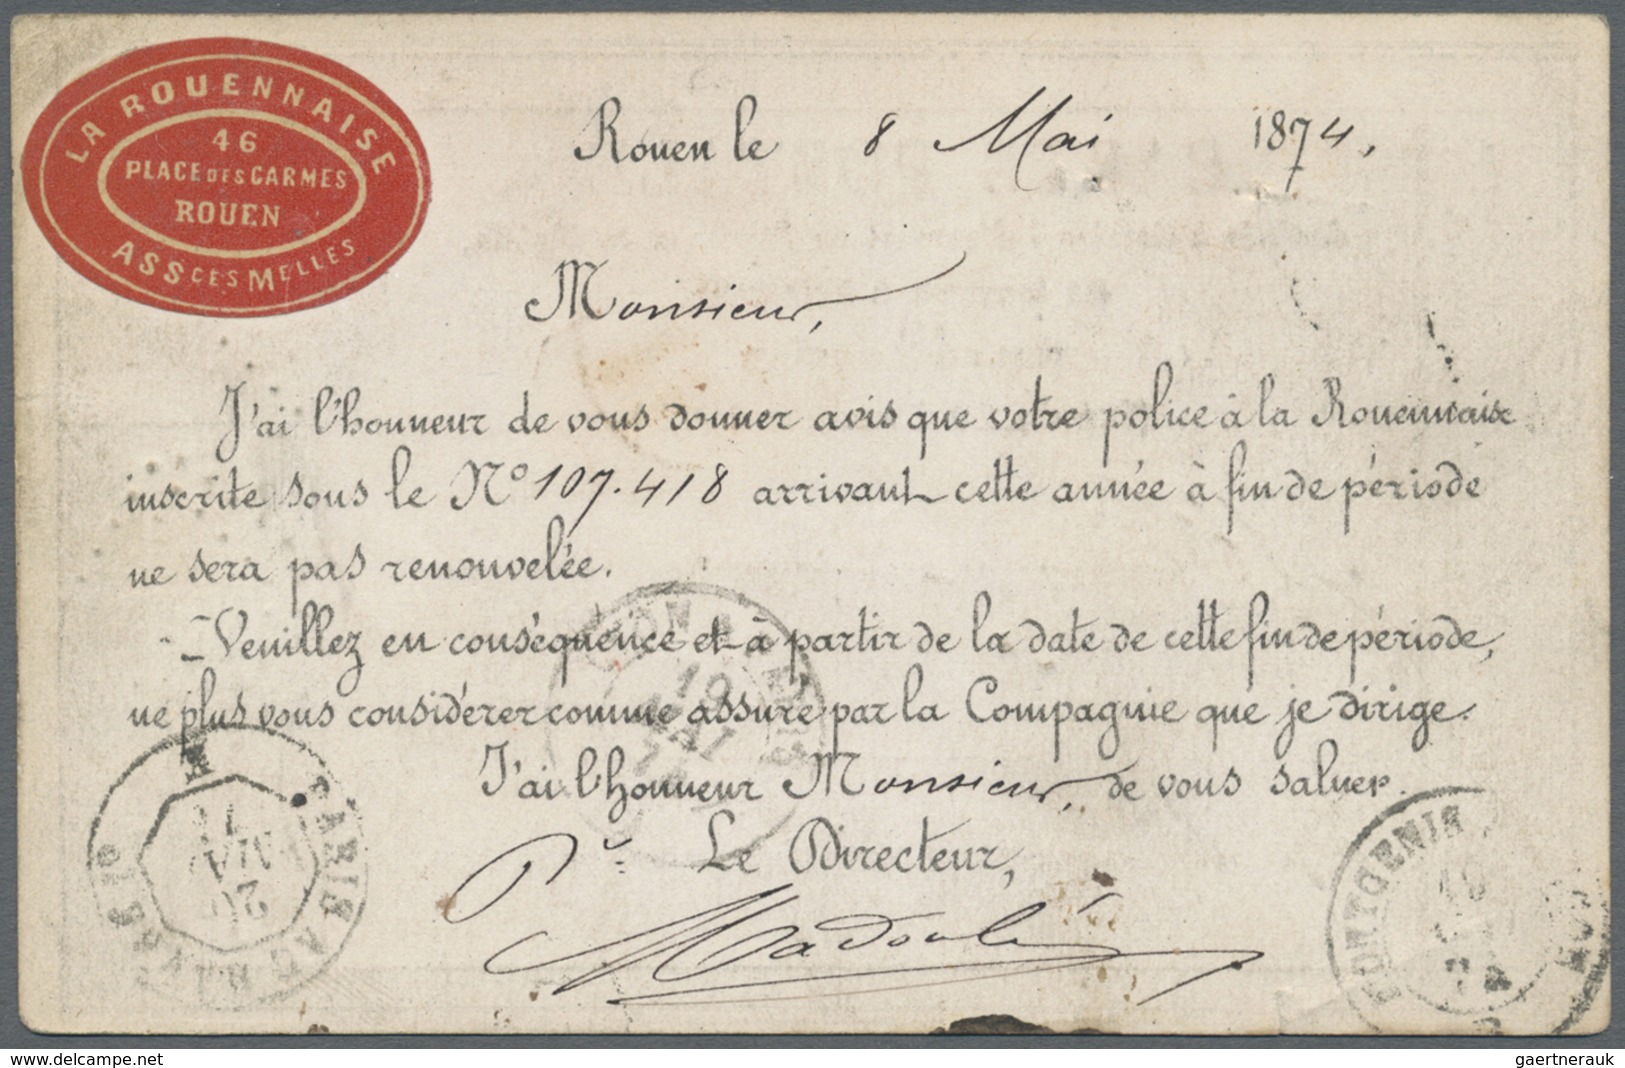 LA ROUENNAISE
46
PLACE DES CARMES
ROUEN
ASSCES MELLES
Rouen le 8 Mai 1874.
Monsieur,
J'ai l'honneur de vous donner avis que votre police à la Rouennaise
inscrite sous le No 107.418 arrivant cette année à fin de période
ne sera pas renouvelée.
Veuillez en conséquence et à partir de la date de cette fin de période,
ne plus vous considérer comme assuré par la Compagnie que je dirige.
J'ai l'honneur Monsieur, de vous saluer.
Pr. Le Directeur,
10
MAI
PARIS AU HAVRE
delcampe.net
gaertnerauk